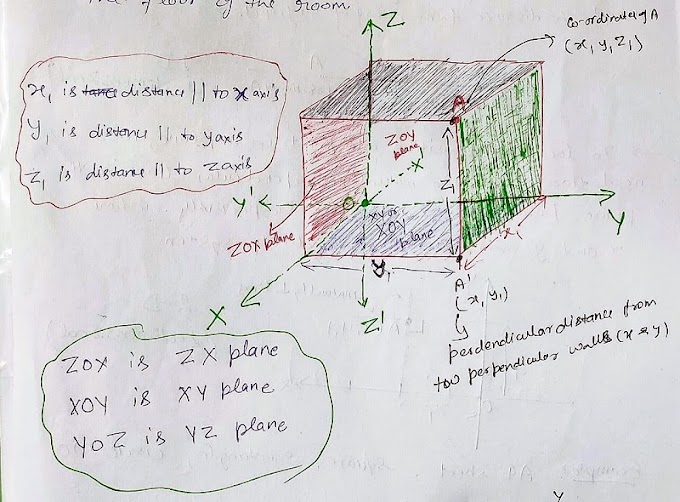 The floor of the room
x₁ is distance || to x axis
y₁ is distance || to y axis
z₁ is distance || to z axis
Z
Co-ordinates of A
(x₁ y₁ z₁)
A
ZOY
plane
X'
Z₁
Y'
O
XY or
XOY
plane
Y
ZOX plane
x₁
y₁
X
Z'
A'
(x₁ y₁)
perdendicular distance from
tow perpendicular walls (x & y)
ZOX is ZX plane
XOY is XY plane
YOZ is YZ plane
Y